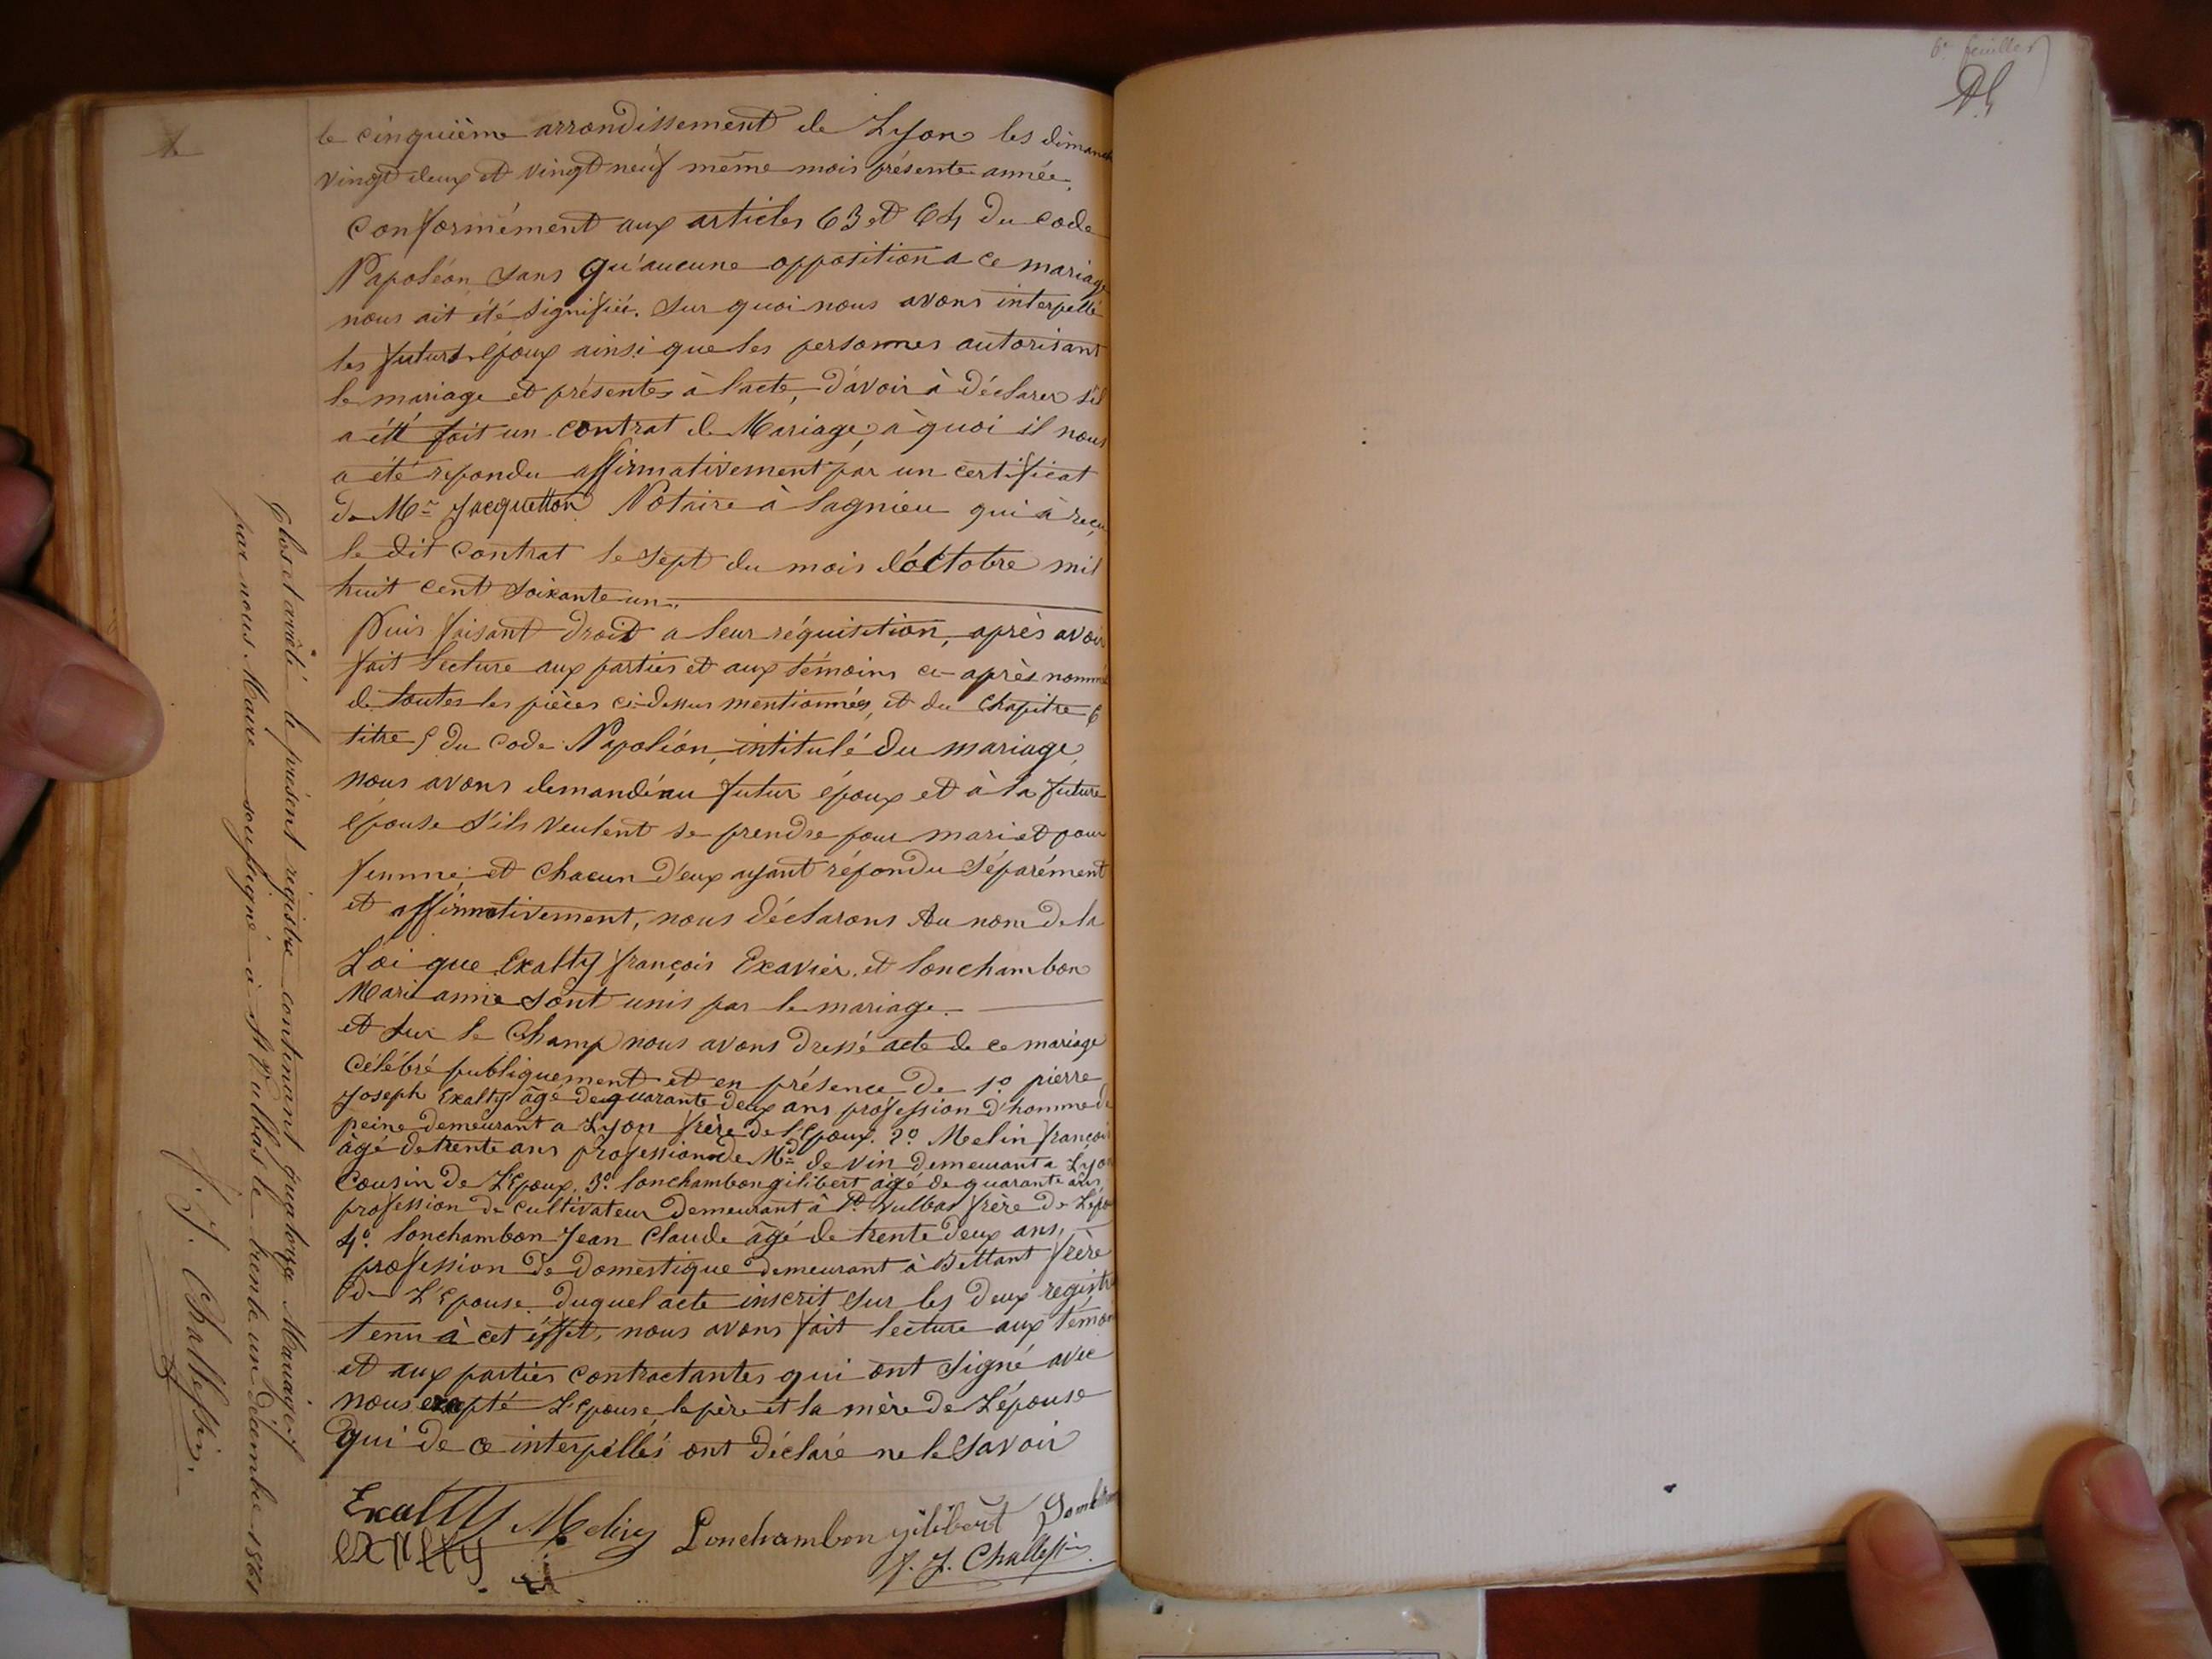 le cinquième arrondissement de Lyon les dimanch
vingt deux et vingt neuf même mois présente année.
conformément aux articles 63 et 64 du code
Napoléon sans qu'aucune opposition a ce mariage
nous ait été signifiée. Sur quoi nous avons interpellé
les futurs époux ainsi que les personnes autorisant
le mariage et présentes à l'acte, d'avoir à déclarer s'il
a été fait un contrat de Mariage, à quoi il nous
a été repondu affirmativement par un certificat
de Mr Jacquetton Notaire à Lagnieu qui à reçu
le dit contrat le sept du mois d'octobre mil
huit cent soixante un.
Puis faisant droit a leur réquisition, après avoir
fait lecture aux parties et aux témoins ci-après nommé
de toutes les pièces ci-dessus mentionnées, et du chapitre 6
titre 5 du code Napoléon, intitulé du mariage,
nous avons demandé au futur époux et à la future
épouse s'ils veulent se prendre pour mari et pour
femme, et chacun d'eux ayant répondu séparément
et affirmativement, nous déclarons Au nom de la
Loi que Exalty françois Exavier, et lonchambon
Marianne sont unis par le mariage.
et sur le champ nous avons dressé acte de ce mariage
célébré publiquement et en présence de 1º pierre
Joseph Exalty âgé de quarante deux ans profession d'homme de
peine demeurant a Lyon frère de l'Epoux. 2º Melin françois
âgé de trente ans profession de Md de vin demeurant a Lyon
Cousin de L'Epoux, 3º lonchambon gilibert âgé de quarante ans
profession de cultivateur demeurant à St Vulbas frère de L'épo
4º lonchambon Jean Claude âgé de trente deux ans,
profession de domestique demeurant à Bettant frère
de L'Epouse. duquel acte inscrit sur les deux registre
tenu à cet effet, nous avons fait lecture aux témoi
et aux parties contractantes qui ont signé avec
nous exepté L'épouse, le père et la mère de L'épouse
qui de ce interpellés ont déclaré ne le savoir
Exalty Melin Lonchambon gilibert
exalty J. J. Challestin
Clos et arrêté le présent régistre contenant quatorze Mariages
par nous Maire soussigné à St Vulbas le trente un décembre 1861
J. J. Challestin.
6e feuillet